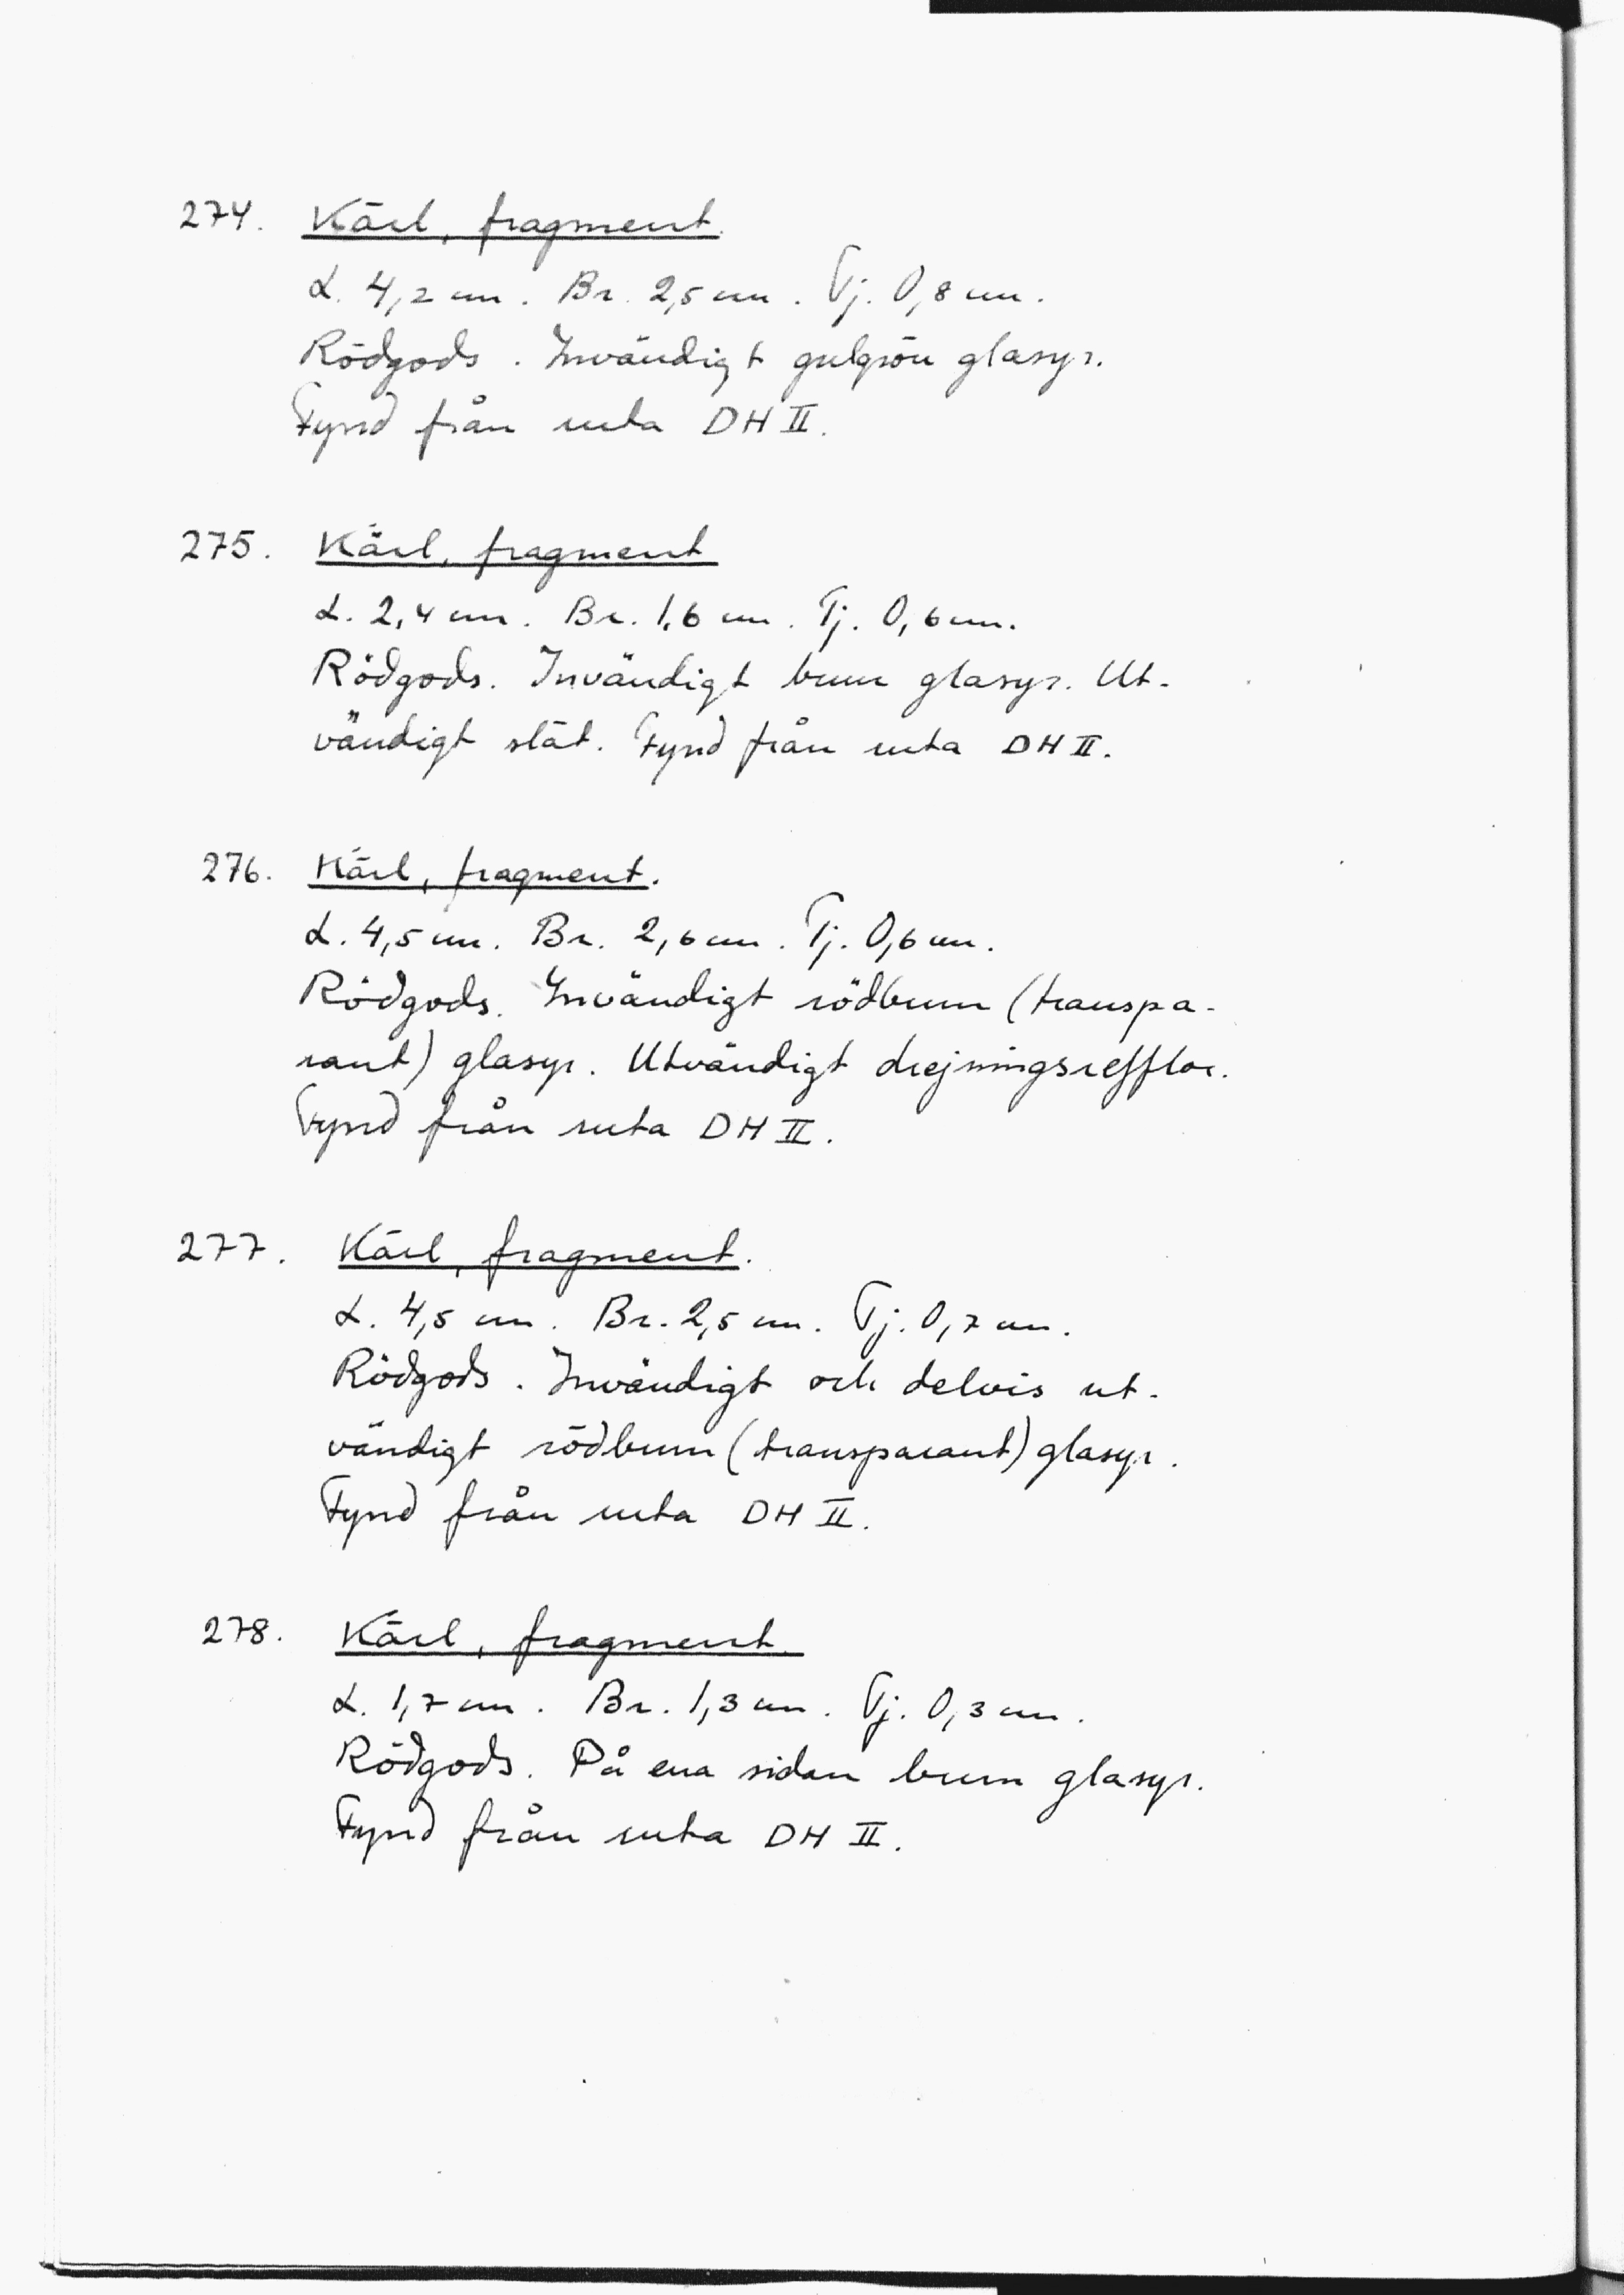 274. Kärl, fragment.
L. 4,2 cm. Br. 2,5 cm. Tj. 0,8 cm.
Rödgods. Invändigt gulgrön glasyr.
Fynd från ruta DH II.
275. Kärl, fragment
L. 2,4 cm. Br. 1,6 cm. Tj. 0,6 cm.
Rödgods. Invändigt brun glasyr. Ut-
vändigt slät. Fynd från ruta DH II.
276. Kärl, fragment.
L. 4,5 cm. Br. 2,6 cm. Tj. 0,6 cm.
Rödgods. Invändigt rödbrun (transpa-
rant) glasyr. Utvändigt drejningsrefflor.
Fynd från ruta DH II.
277. Kärl, fragment.
L. 4,5 cm. Br. 2,5 cm. Tj. 0,7 cm.
Rödgods. Invändigt och delvis ut-
vändigt rödbrun (transparant) glasyr.
Fynd från ruta DH II.
278. Kärl, fragment.
L. 1,7 cm. Br. 1,3 cm. Tj. 0,3 cm.
Rödgods. På ena sidan brun glasyr.
Fynd från ruta DH II.